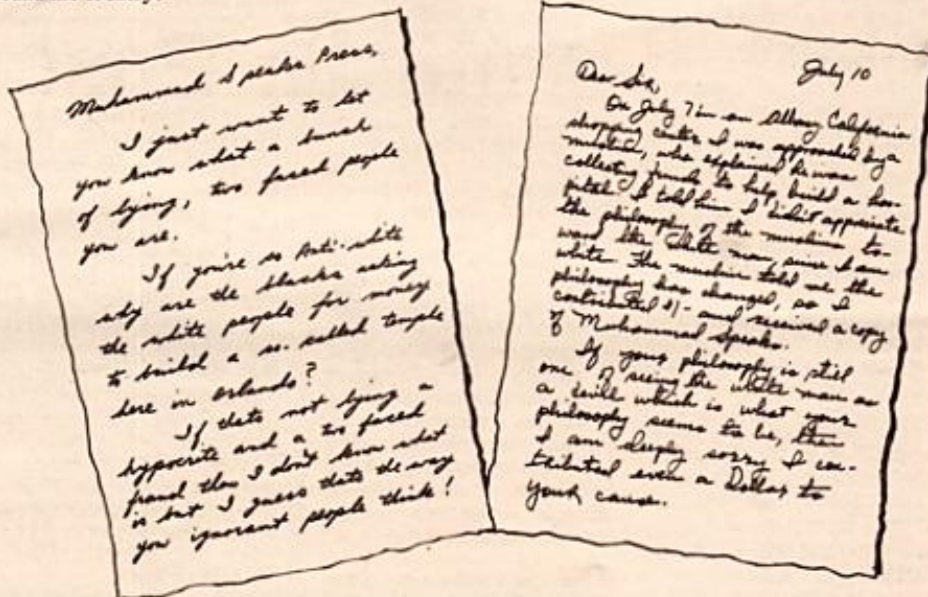 Muhammad Speaks Press,
I just want to let
you know what a bunch
of lying, two faced people
you are.
If you're so Anti-white
why are the blacks asking
the white people for money
to build a so-called temple
here in Orlando?
If thats not lying a
hypocrite and a two faced
fraud then I don't know what
is but I guess thats the way
you ignorant people think!
July 10
Dear Sir,
On July 7 in an Albany California
shopping center I was approached by a
muslim, who explained he was
collecting funds to help build a hos-
pital. I told him I didn't appreciate
the philosophy of the muslims to-
ward the white man, since I am
white. The muslim told me the
philosophy has changed, so I
contributed $1- and received a copy
of Muhammad Speaks.
If your philosophy is still
one of seeing the white man as
a devil which is what your
philosophy seems to be, then
I am deeply sorry I con-
tributed even a Dollar to
your cause.